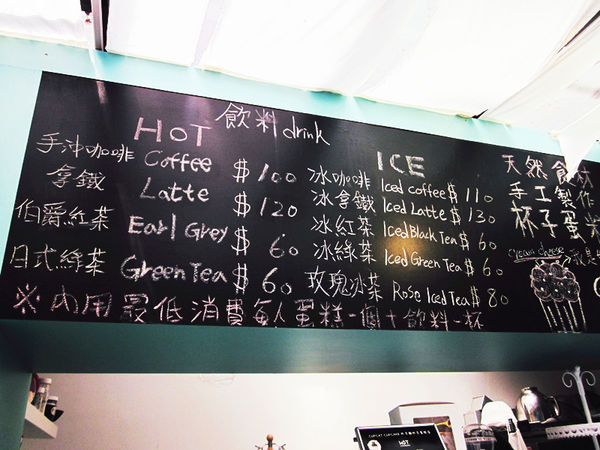 飲料drink
HOT
手沖咖啡 Coffee $100
拿鐵 Latte $120
伯爵紅茶 Earl Grey $60
日式綠茶 Green Tea $60
ICE
冰咖啡 Iced coffee $110
冰拿鐵 Iced Latte $130
冰紅茶 Iced Black Tea $60
冰綠茶 Iced Green Tea $60
玫瑰冰茶 Rose Iced Tea $80
※內用最低消費每人蛋糕一個+飲料一杯
天然食材
手工製作
杯子蛋糕
cream cheese
HOT